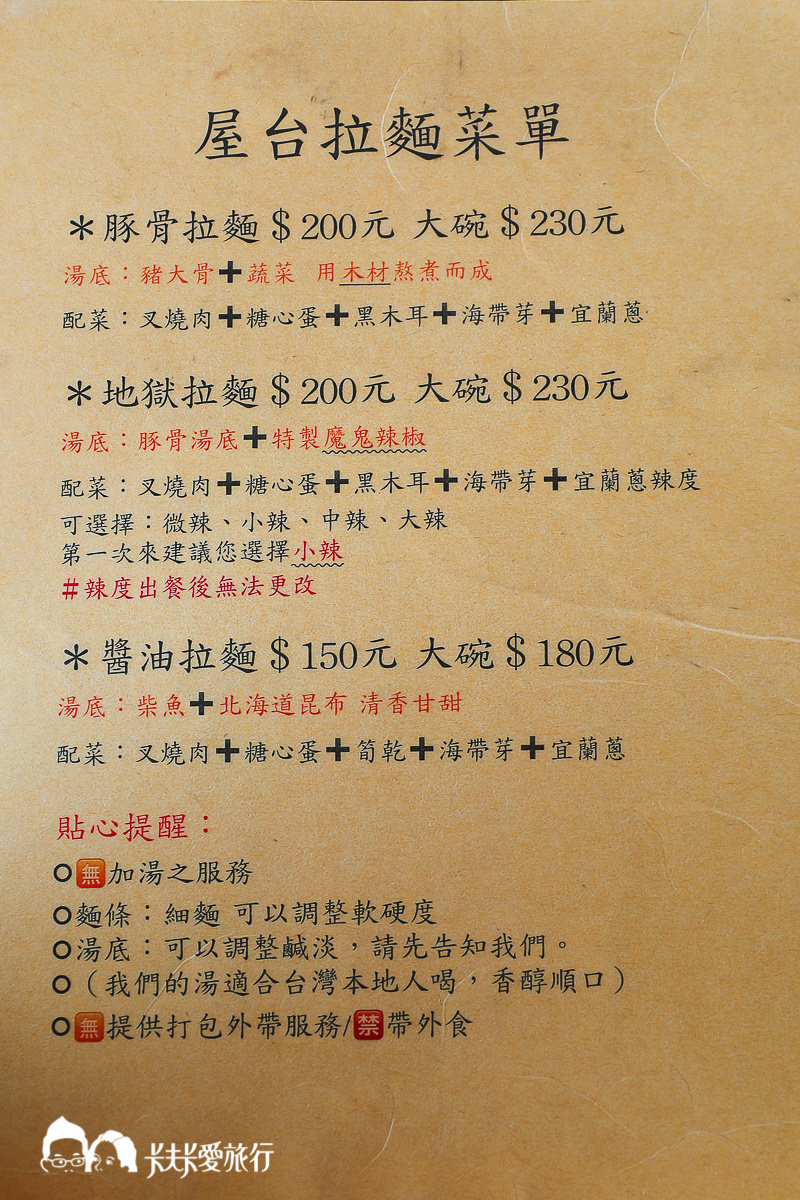 屋台拉麵菜單
＊豚骨拉麵＄200元 大碗＄230元
湯底：豬大骨➕蔬菜 用木材熬煮而成
配菜：叉燒肉➕糖心蛋➕黑木耳➕海帶芽➕宜蘭蔥
＊地獄拉麵＄200元 大碗＄230元
湯底：豚骨湯底➕特製魔鬼辣椒
配菜：叉燒肉➕糖心蛋➕黑木耳➕海帶芽➕宜蘭蔥辣度
可選擇：微辣、小辣、中辣、大辣
第一次來建議您選擇小辣
#辣度出餐後無法更改
＊醬油拉麵＄150元 大碗＄180元
湯底：柴魚➕北海道昆布 清香甘甜
配菜：叉燒肉➕糖心蛋➕筍乾➕海帶芽➕宜蘭蔥
貼心提醒：
⭘🈚加湯之服務
⭘麵條：細麵 可以調整軟硬度
⭘湯底：可以調整鹹淡，請先告知我們。
⭘（我們的湯適合台灣本地人喝，香醇順口）
⭘🈚提供打包外帶服務/🈲帶外食
卡夫卡愛旅行